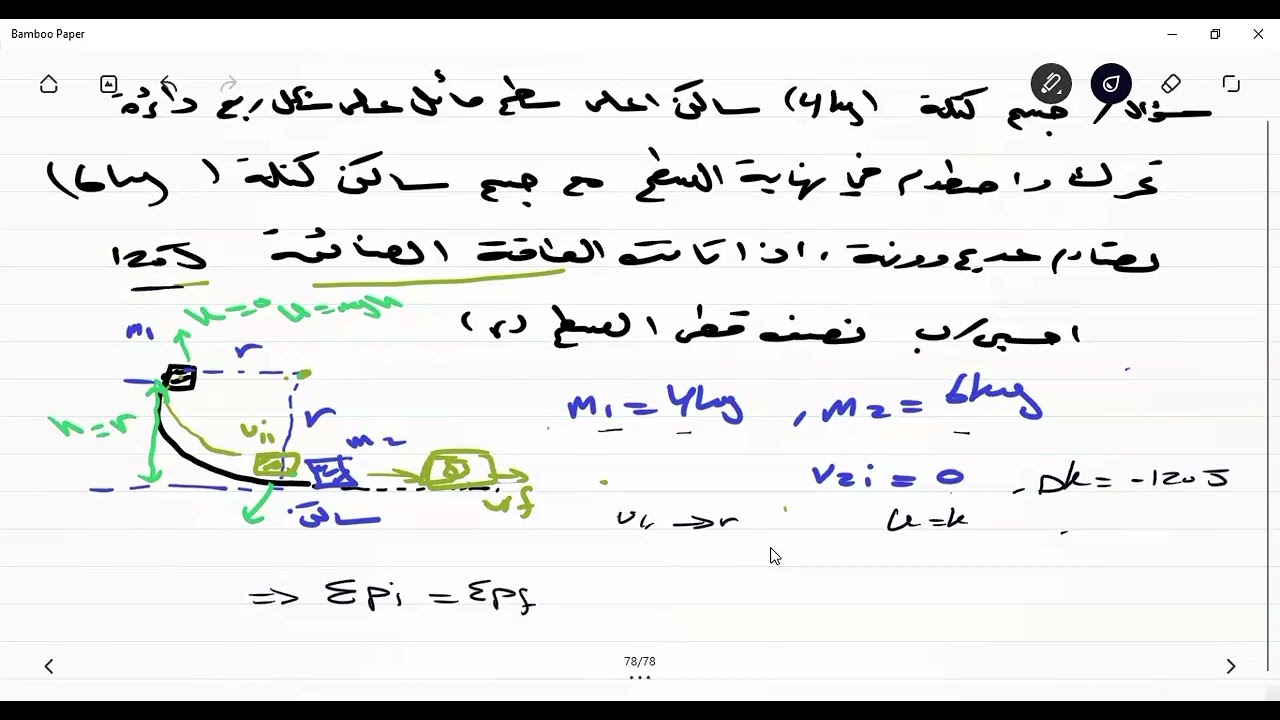 Bamboo Paper
سؤال / جسم كتلة (4kg) ساكن اعلى سطح مائل على شكل ربع دائرة
ترك واصطدم في نهاية السطح مع جسم ساكن كتلة (6kg)
تصادم عديم مرونة ، اذا كانت الطاقة الضائعة 120J
احسب / نصف قطر السطح (r)
k=0 u=mgh
m1
r
h=r
r
v1i
m2
ساكن
vf
m1 = 4kg , m2 = 6kg
v2i = 0 , Δk = -120J
v1i → r
u = k
⇒ Σpi = Σpf
78/78